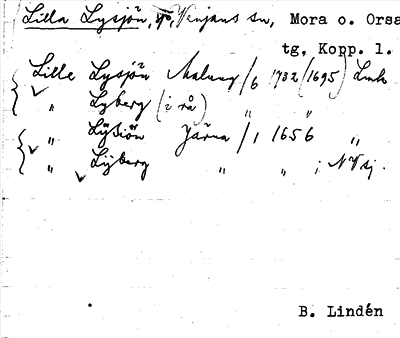 Lilla Lysjön, sjö, Venjans sn, Mora o. Orsa
tg, Kopp. l.
Lille Lysjön Malung /6 1732 (1695) Lmk
" Lyberg (i rå) " "
" Lÿsiön Järna /1 1656 "
" Lÿberg " " ; NV sj.
B. Lindén